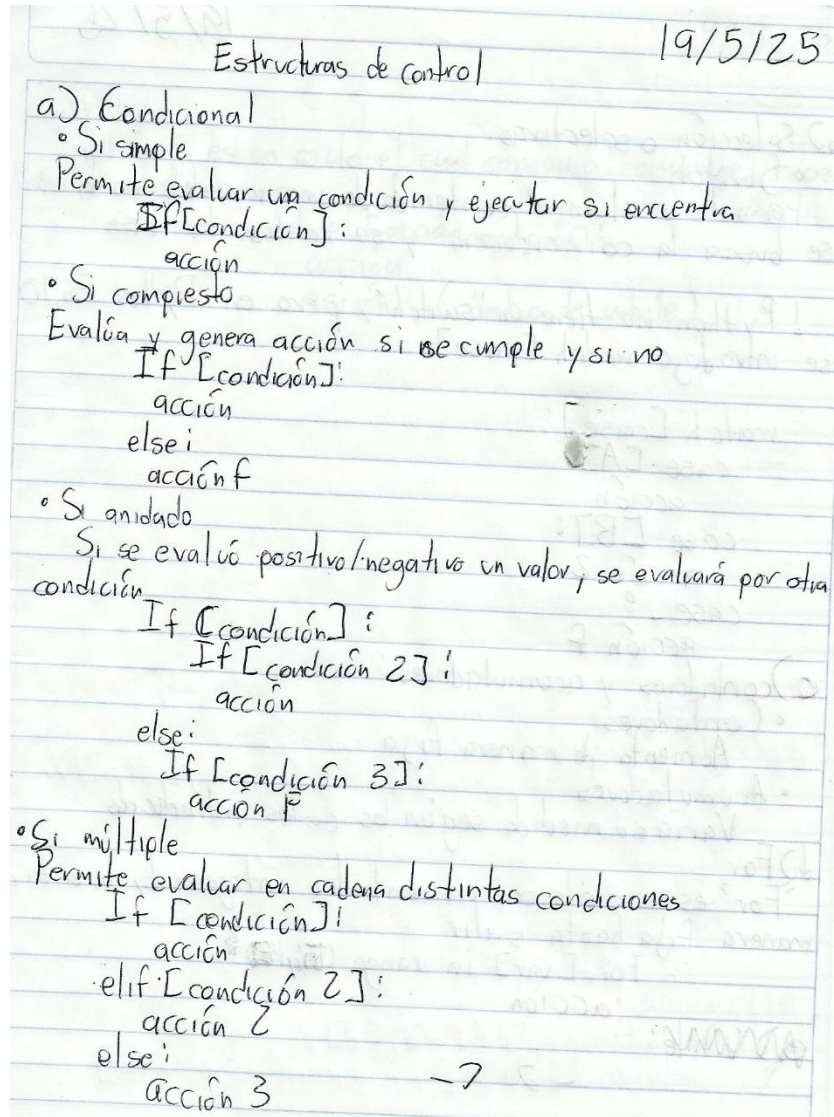 19/5/25
Estructuras de control
a) Condicional
• Si simple
Permite evaluar una condición y ejecutar si encuentra
If [condición]:
acción
• Si compuesto
Evalúa y genera acción si se cumple y si no
If [condición]:
acción
else:
acción f
• Si anidado
Si se evaluó positivo/negativo un valor, se evaluará por otra
condición
If [condición]:
If [condición 2]:
acción
else:
If [condición 3]:
acción F
• Si múltiple
Permite evaluar en cadena distintas condiciones
If [condición]:
acción
elif [condición 2]:
acción 2
else:
acción 3 →